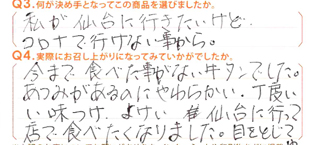 Q3.何が決め手となってこの商品を選びましたか。
私が仙台に行きたいけど
コロナで行けない事から。
Q4.実際にお召し上がりになってみていかがでしたか。
今まで食べた事がない牛タンでした。
あつみがあるのにやわらかい。丁度い
い味つけ。よけい 仙台に行って
店で食べたくなりました。目をとじて